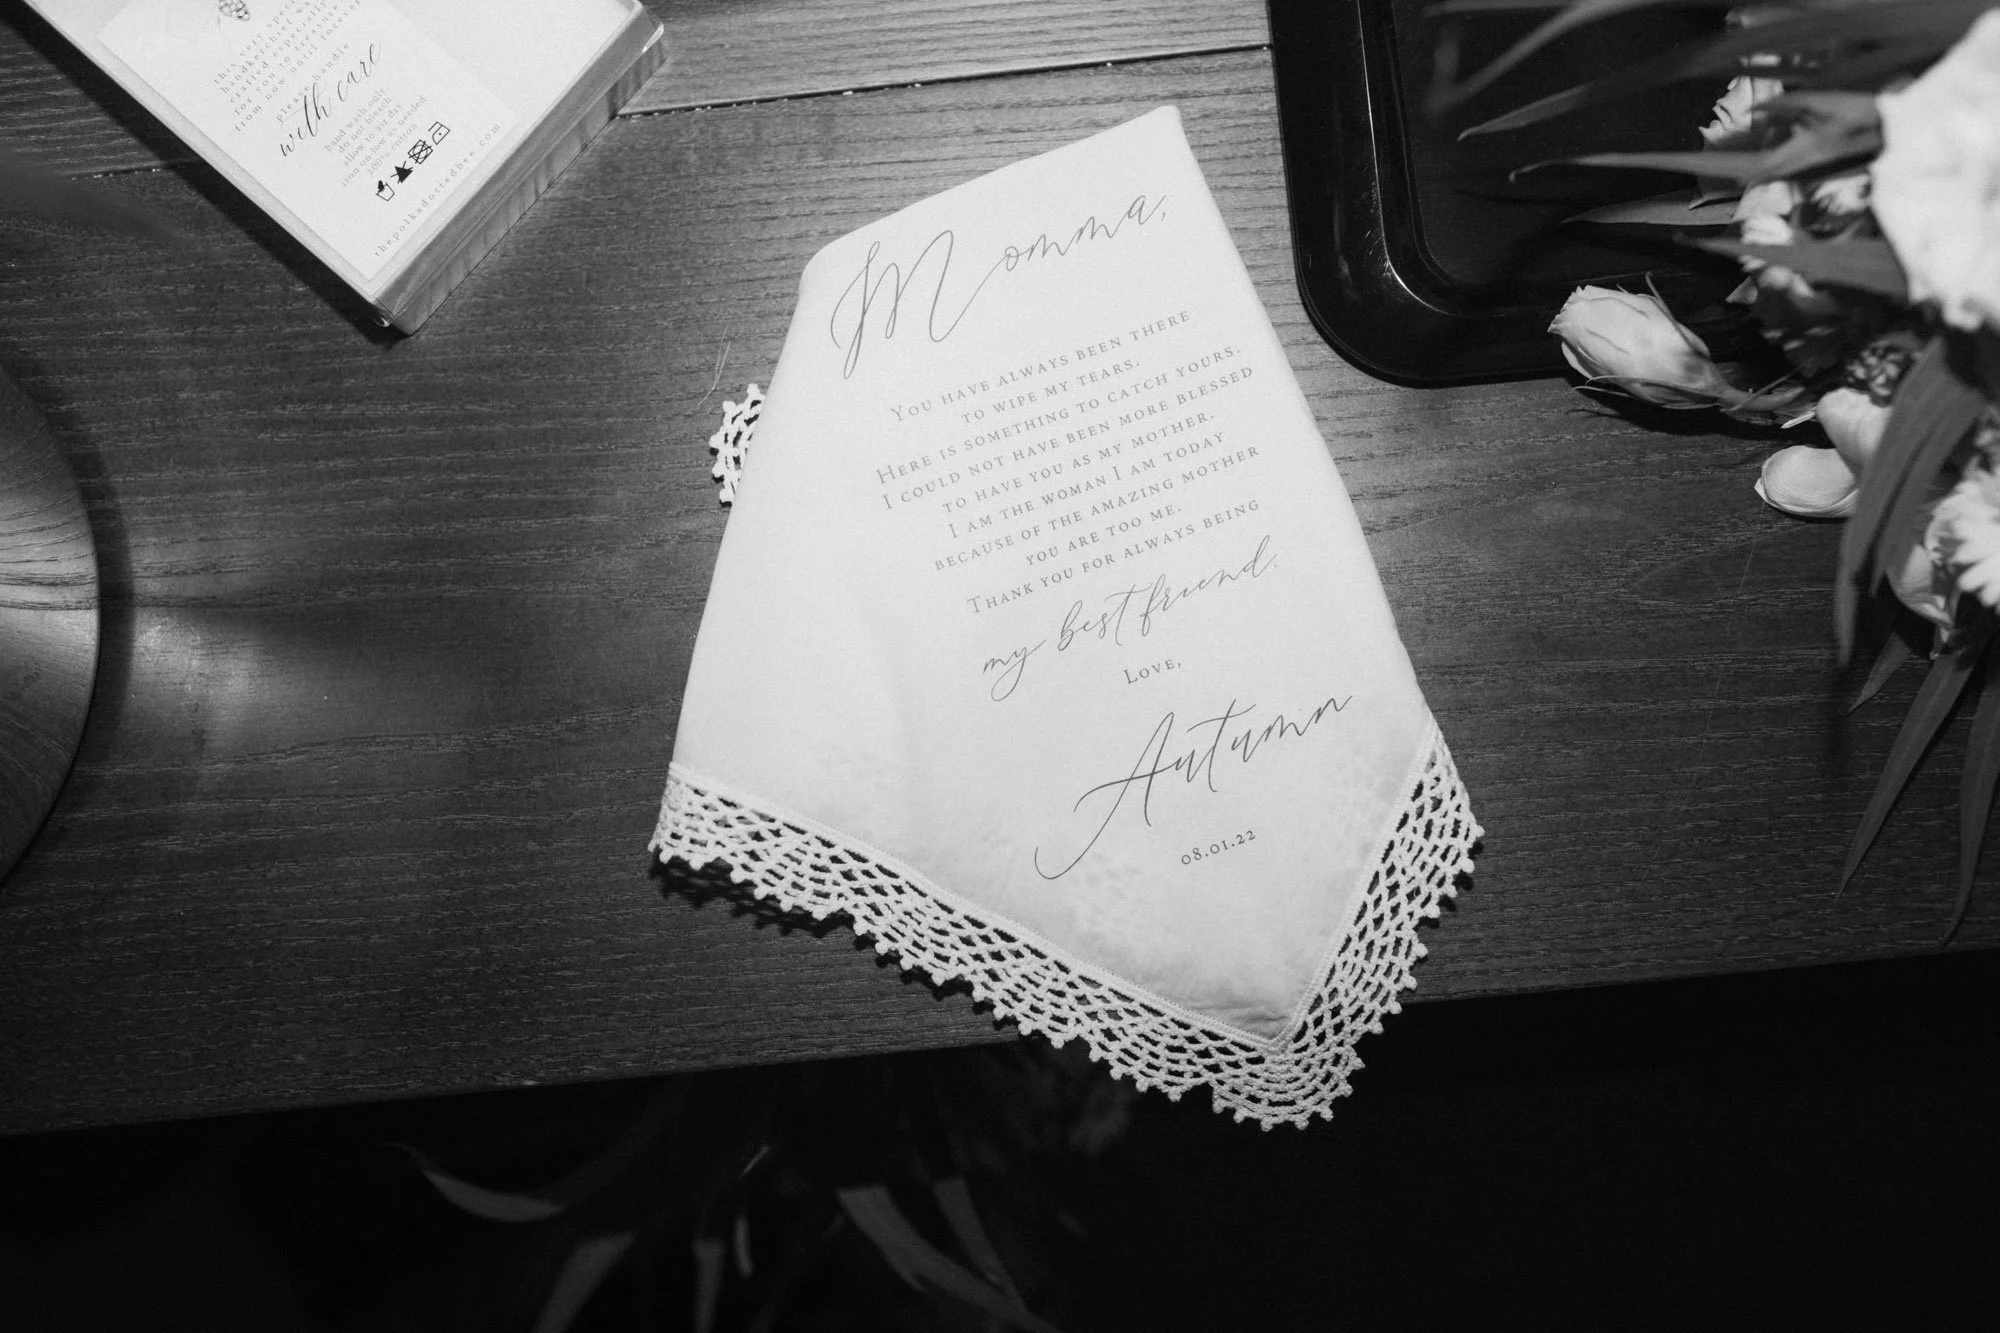 this very spec
handkerchief wa
crafted especially
for you to treasure
from now until forever
please handle
with care
hand wash only
do not bleach
allow to air dry
iron on low as needed
100% cotton
thepolkadottedbee.com
Momma,
You have always been there
to wipe my tears.
Here is something to catch yours.
I could not have been more blessed
to have you as my mother.
I am the woman I am today
because of the amazing mother
you are too me.
Thank you for always being
my best friend.
Love,
Autumn
08.01.22